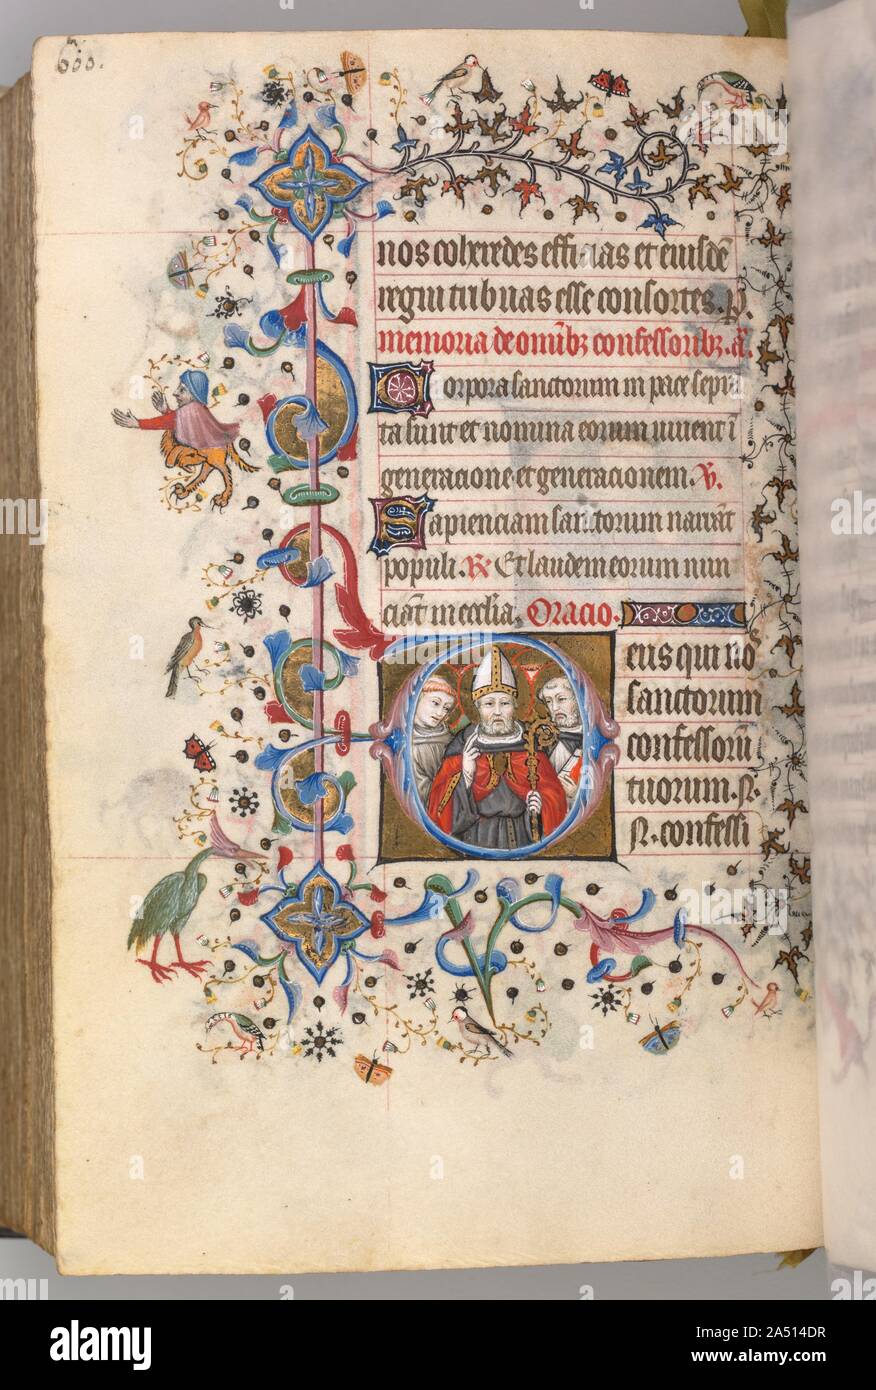 nos coheredes effi as et eiusdē
regni tribuas esse consortes. P.
memoria de omībꝫ confessoribꝫ. ā.
Corpora sanctorum in pace sepul
ta sunt et nomina eorum uiuent ī
generacione et generacionem. V.
Sapienciam sanctorum narrāt
populi. R Et laudem eorum nun
ciāt in ecclīa. Oracio.
eus qui nō
sanctorum
confessorū
tuorum .N.
N. confessi
alamy
Image ID: 2A514DR
www.alamy.com